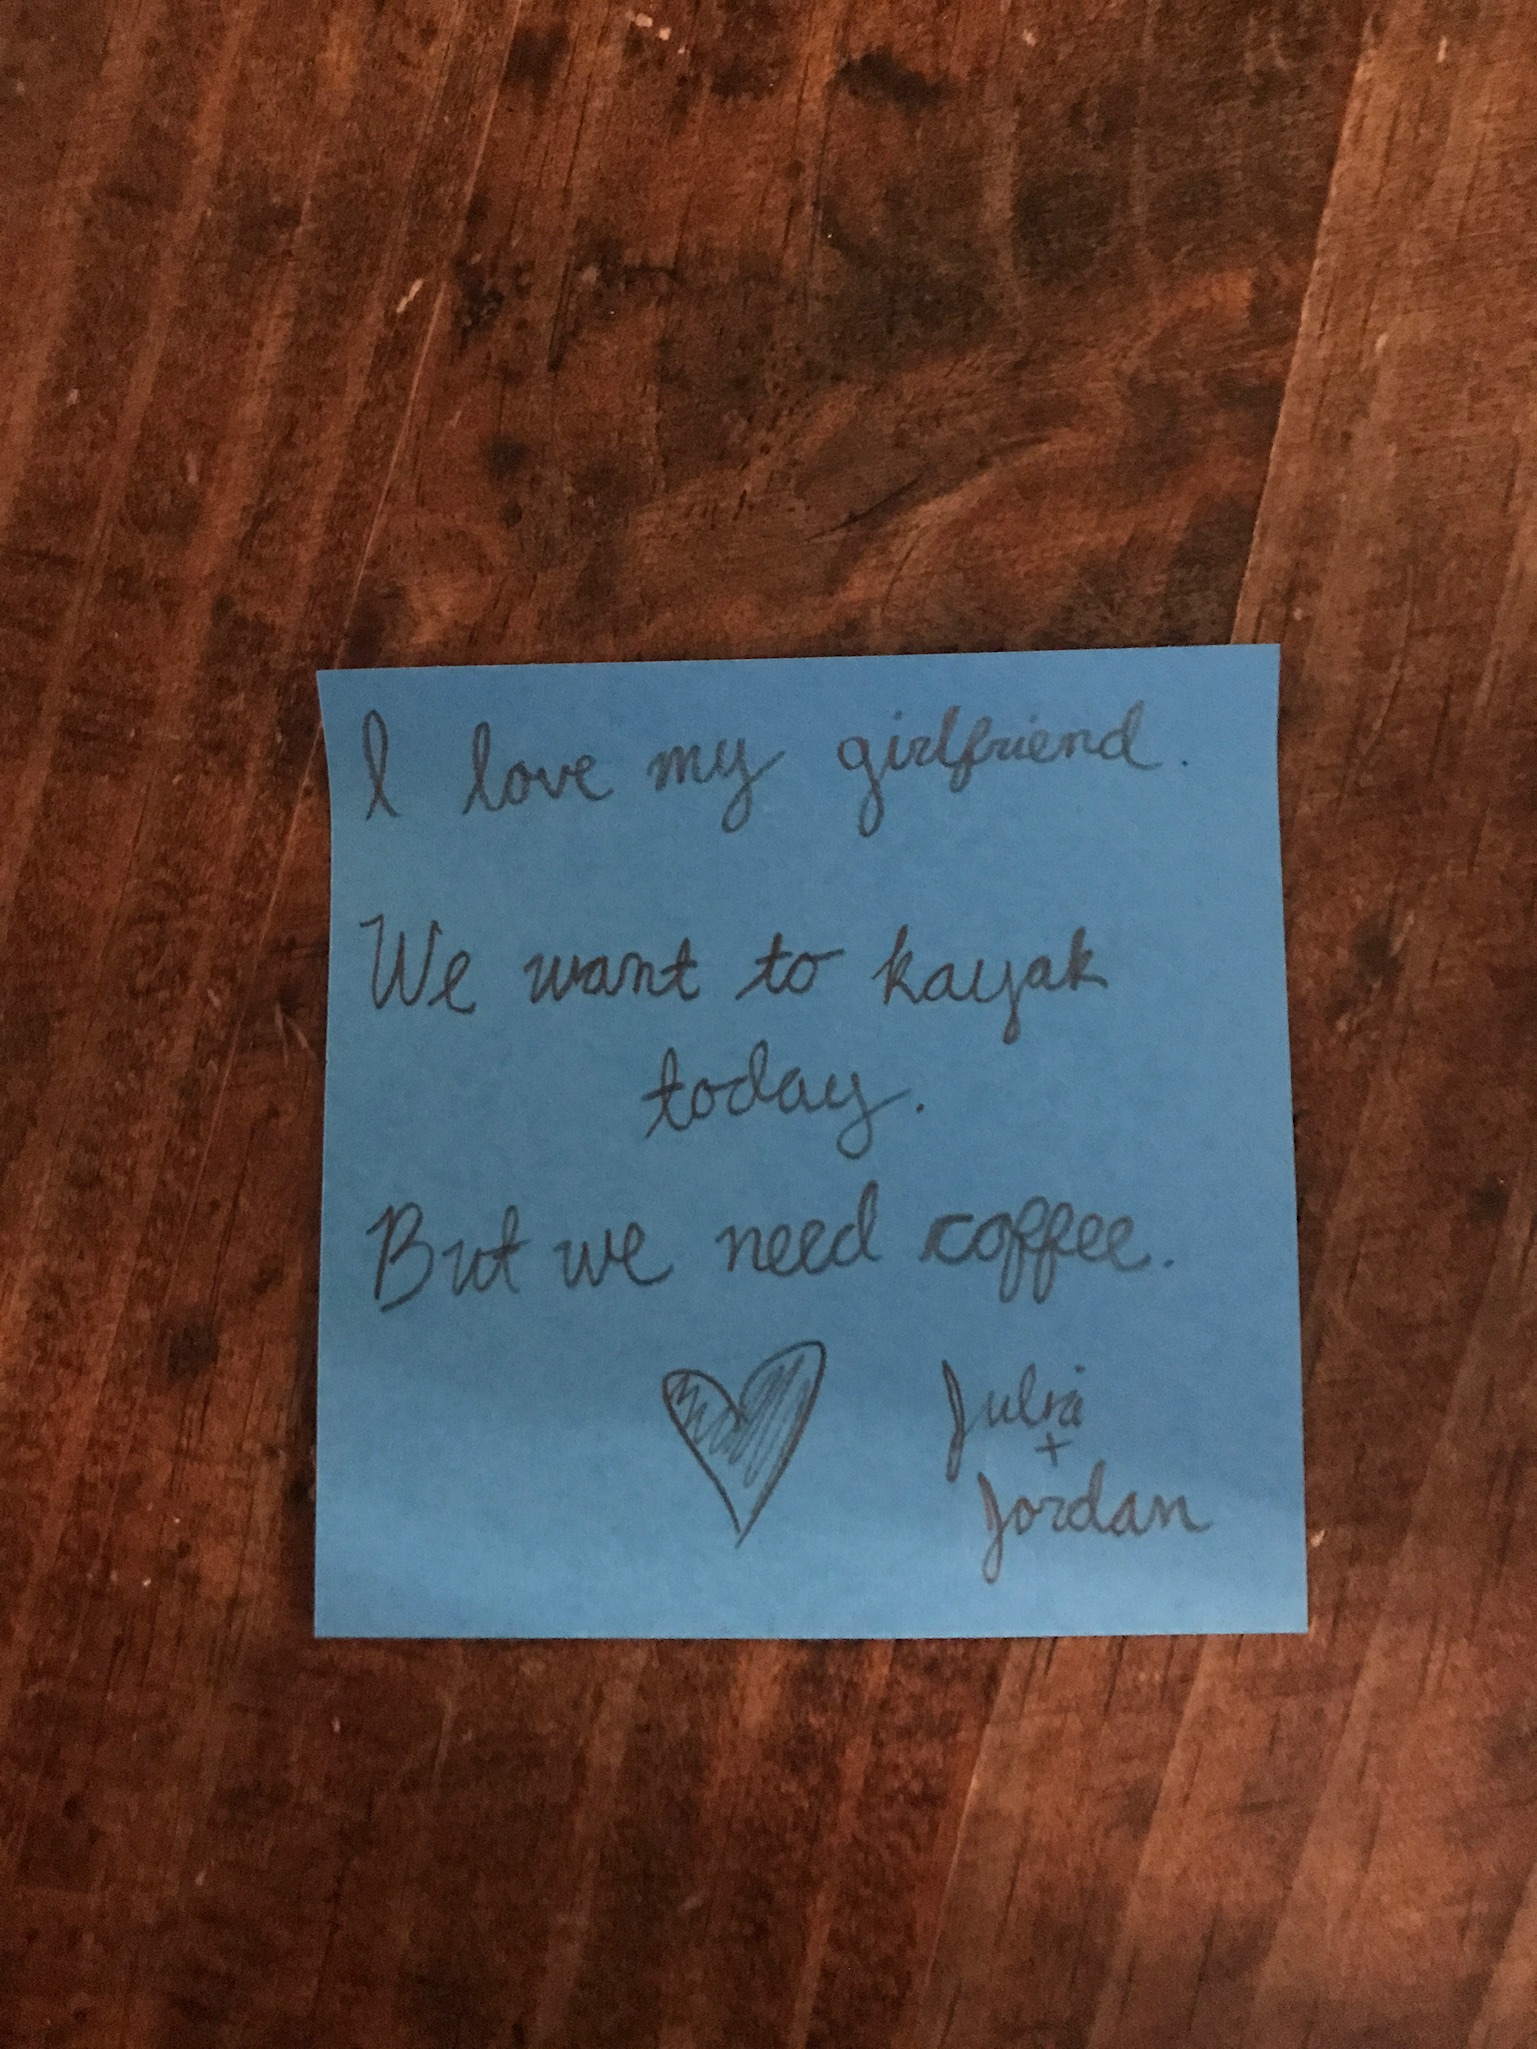 I love my girlfriend.
We want to kayak
today.
But we need coffee.
Julia
+
Jordan